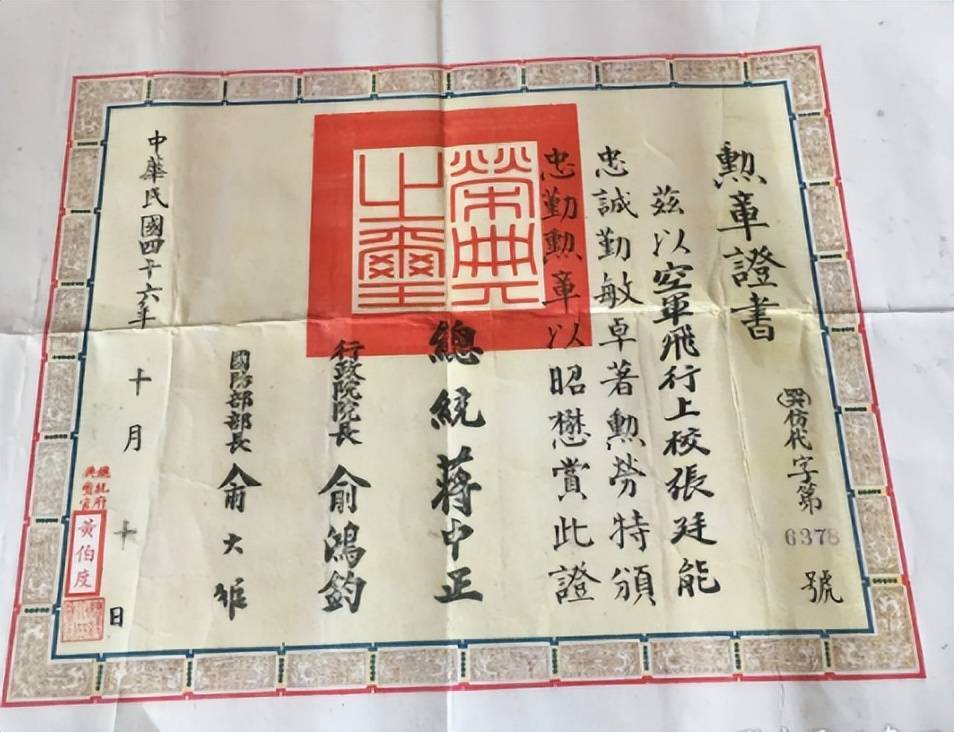 勲章證書
字第6378號
茲以空軍飛行上校張廷能
忠誠勤敏卓著勲勞特頒
忠勤勲章以昭懋賞此證
榮典之璽
總統 蔣中正
行政院院長 俞鴻鈞
國防部部長 俞大維
中華民國四十六年十月十日
總統府
典璽官
黃伯度